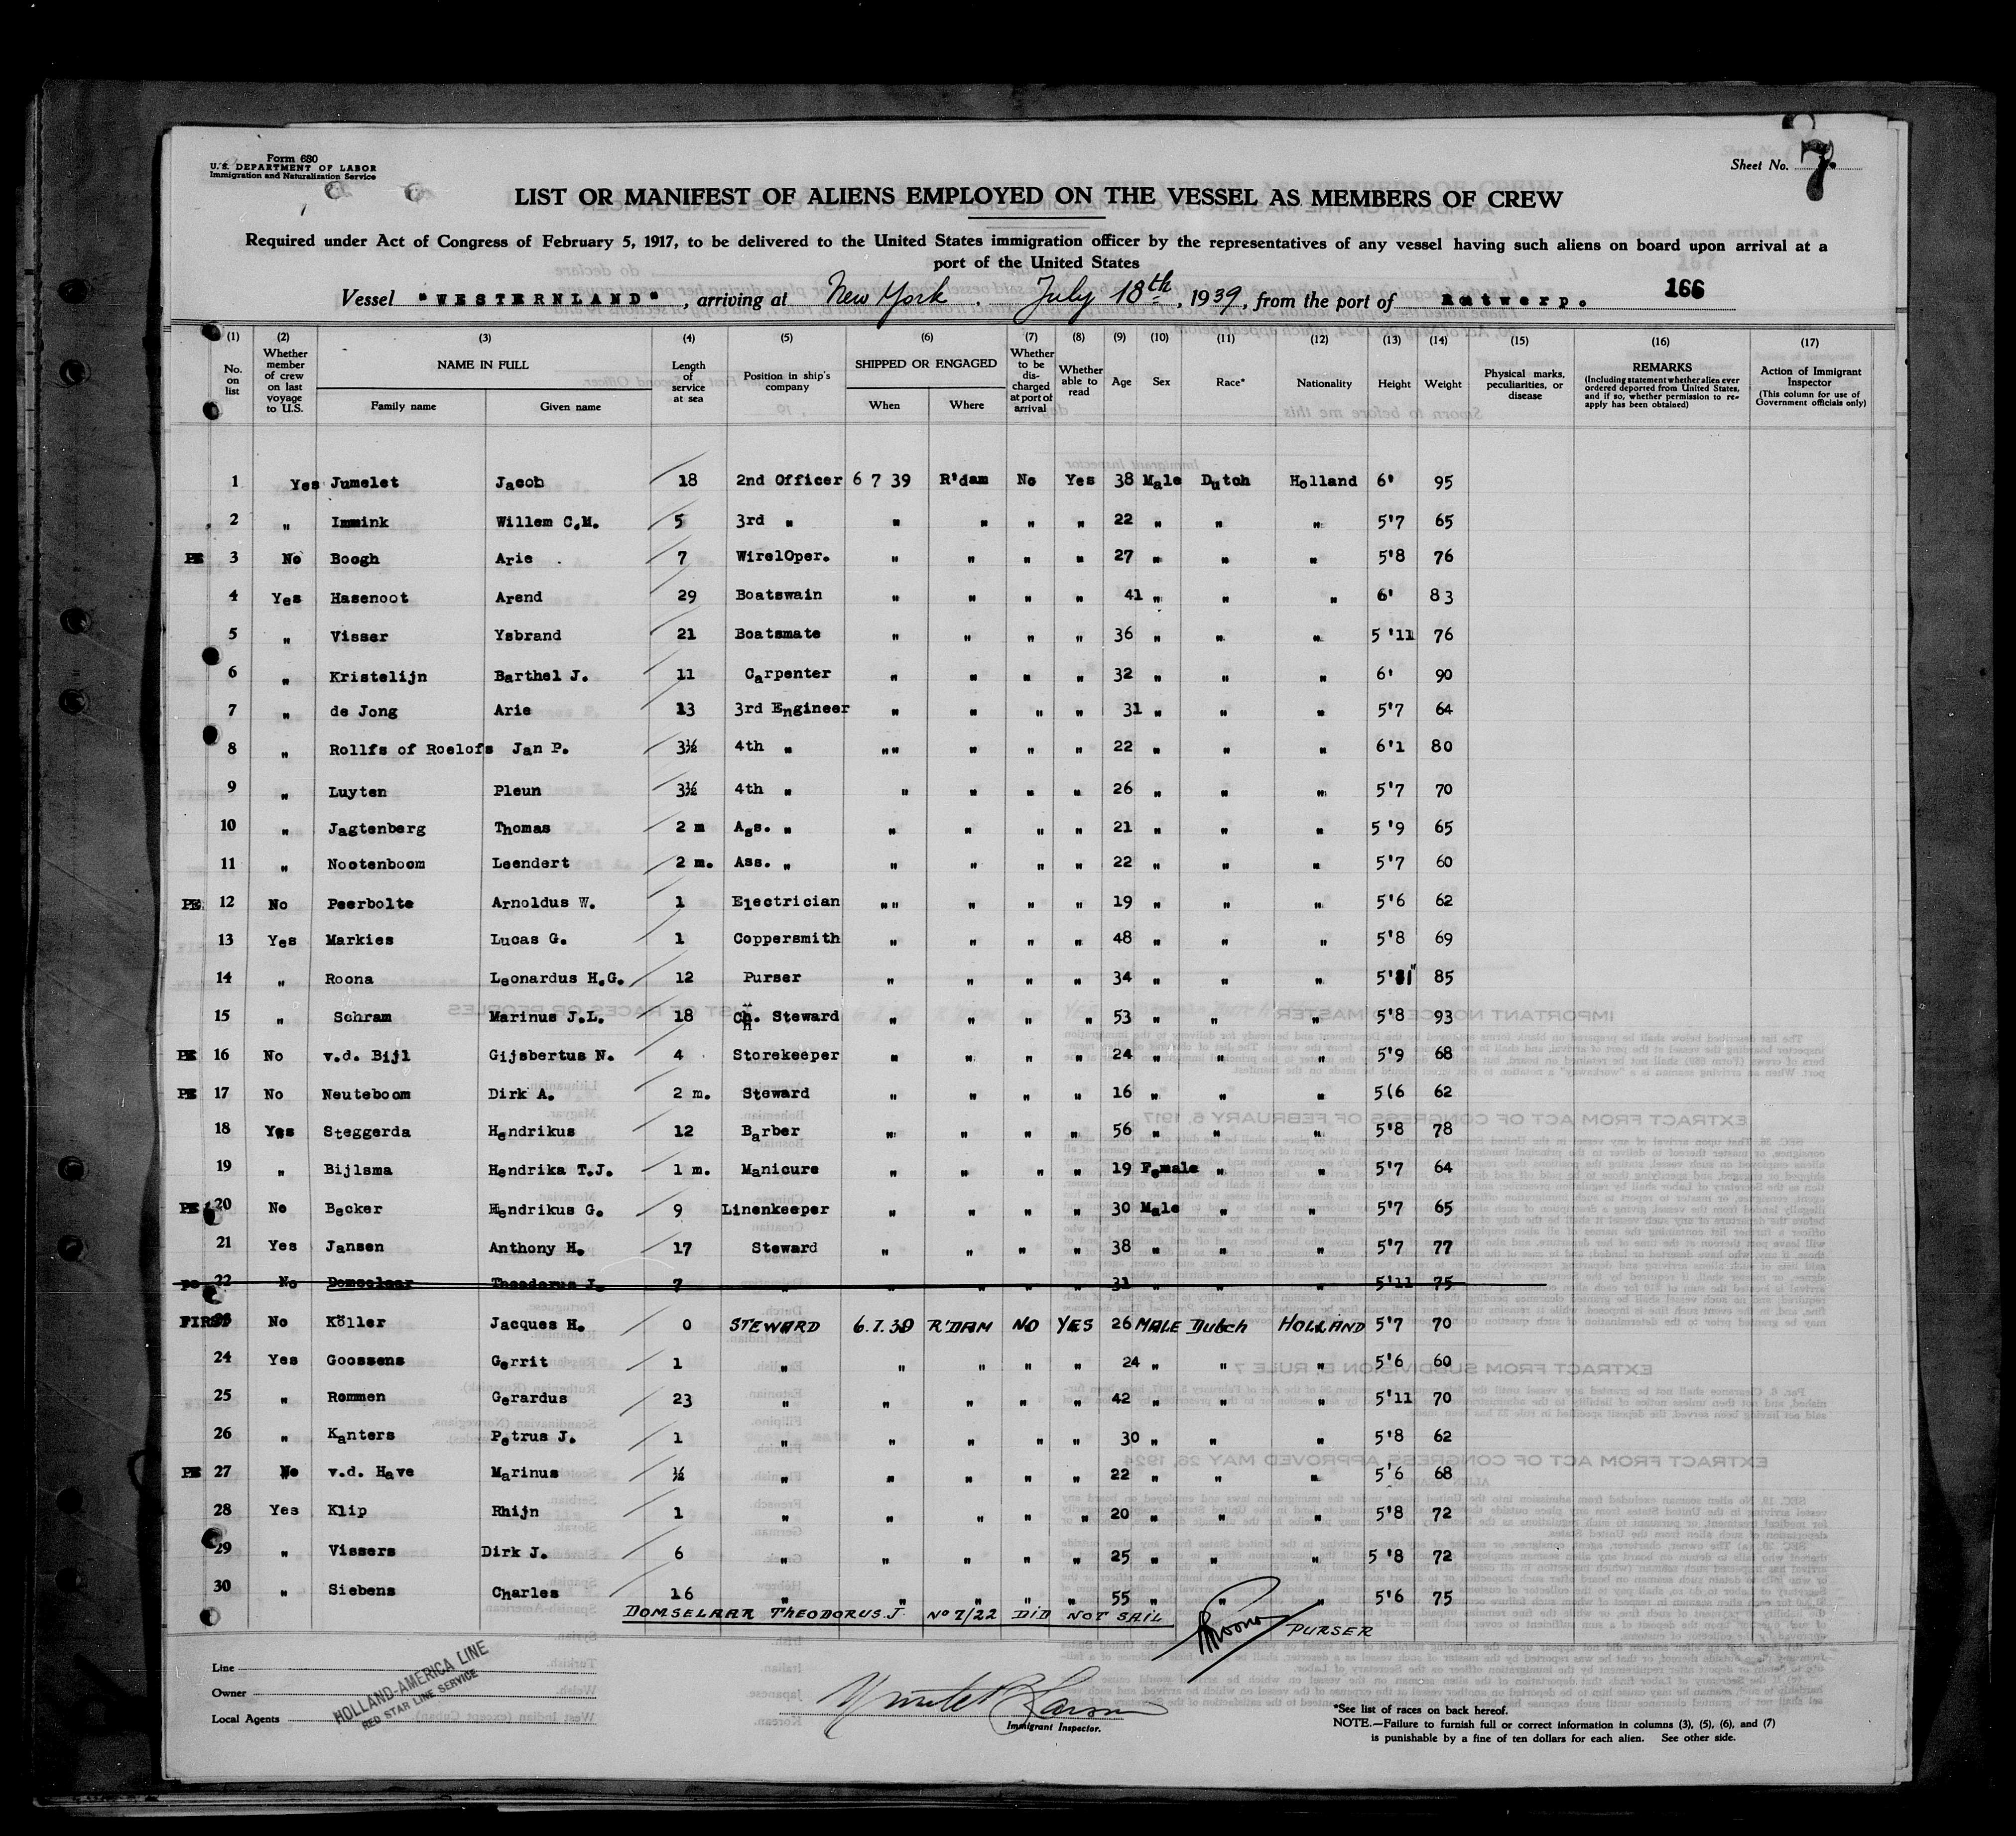 Form 680
U.S. DEPARTMENT OF LABOR
Immigration and Naturalization Service
Sheet No. 7.
LIST OR MANIFEST OF ALIENS EMPLOYED ON THE VESSEL AS MEMBERS OF CREW
Required under Act of Congress of February 5, 1917, to be delivered to the United States immigration officer by the representatives of any vessel having such aliens on board upon arrival at a
port of the United States
166
Vessel "WESTERNLAND", arriving at New York. July 18th, 1939, from the port of Antwerp.
(1) (2) (3) (4) (5) (6) (7) (8) (9) (10) (11) (12) (13) (14) (15) (16) (17)
No. on list Whether member of crew on last voyage to U.S. NAME IN FULL Family name Given name Length of service at sea Position in ship's company SHIPPED OR ENGAGED When Where Whether to be discharged at port of arrival Whether able to read Age Sex Race* Nationality Height Weight Physical marks, peculiarities, or disease REMARKS (Including statement whether alien ever ordered deported from United States, and if so, whether permission to re-apply has been obtained) Action of Immigrant Inspector (This column for use of Government officials only)
1 Yes Jumelet Jacob 18 2nd Officer 6 7 39 R'dam No Yes 38 Male Dutch Holland 6' 95
2 " Immink Willem C.M. 5 3rd " " " " " 22 " " " 5'7 65
PE 3 No Boogh Arie . 7 WirelOper. " " " " 27 " " " 5'8 76
4 Yes Hasenoot Arend 29 Boatswain " " " " 41 " " " 6' 83
5 " Visser Ysbrand 21 Boatsmate " " " " 36 " " " 5'11 76
6 " Kristelijn Barthel J. 11 Carpenter " " " " 32 " " " 6' 90
7 " de Jong Arie 13 3rd Engineer " " " " 31 " " " 5'7 64
8 " Rollfs of Roelofs Jan P. 3½ 4th " "" " " " 22 " " " 6'1 80
9 " Luyten Pleun 3½ 4th " " " " " 26 " " " 5'7 70
10 " Jagtenberg Thomas 2 m Ass. " " " " " 21 " " " 5'9 65
11 " Nootenboom Leendert 2 m. Ass. " " " " " 22 " " " 5'7 60
PE. 12 No Peerbolte Arnoldus W. 1 Electrician "" " " " 19 " " " 5'6 62
13 Yes Markies Lucas G. 1 Coppersmith " " " " 48 " " " 5'8 69
14 " Roona Leonardus H.G. 12 Purser " " " " 34 " " " 5' 85
15 " Schram Marinus J.L. 18 Ch. Steward " " " " 53 " " " 5'8 93
PE 16 No v.d. Bijl Gijsbertus N. 4 Storekeeper " " " " 24 " " " 5'9 68
PE 17 No Neuteboom Dirk A. 2 m. Steward " " " " 16 " " " 5(6 62
18 Yes Steggerda Hendrikus 12 Barber " " " " 56 " " " 5'8 78
19 " Bijlsma Hendrika T.J. 1 m. Manicure " " " " 19 Female " " 5'7 64
PE 20 No Becker Hendrikus G. 9 Linenkeeper " " " " 30 Male " " 5'7 65
21 Yes Jansen Anthony H. 17 Steward " " " " 38 " " " 5'7 77
pe 22 No Domselaar Theodorus J. 7 " " " " " 31 " " " 5'11 75
FIRST No Köller Jacques H. 0 STEWARD 6.7.39 R'DAM NO YES 26 MALE Dutch HOLLAND 5'7 70
24 Yes Goossens Gerrit 1 " " " " " 24 " " " 5'6 60
25 " Rommen Gerardus 23 " " " " " 42 " " " 5'11 70
26 " Kanters Petrus J. 1 " " " " " 30 " " " 5'8 62
PE 27 No v.d. Have Marinus ½ " " " " " 22 " " " 5'6 68
28 Yes Klip Rhijn 1 " " " " " 20 " " " 5'8 72
29 " Vissers Dirk J. 6 " " " " " 25 " " " 5'8 72
30 " Siebens Charles 16 " " " " " 55 " " " 5'6 75
DOMSELAAR THEODORUS.J. No 7/22 DID NOT SAIL
PURSER
Line
Owner
Local Agents
HOLLAND-AMERICA LINE
RED STAR LINE SERVICE
Immigrant Inspector.
*See list of races on back hereof.
NOTE.—Failure to furnish full or correct information in columns (3), (5), (6), and (7)
is punishable by a fine of ten dollars for each alien. See other side.